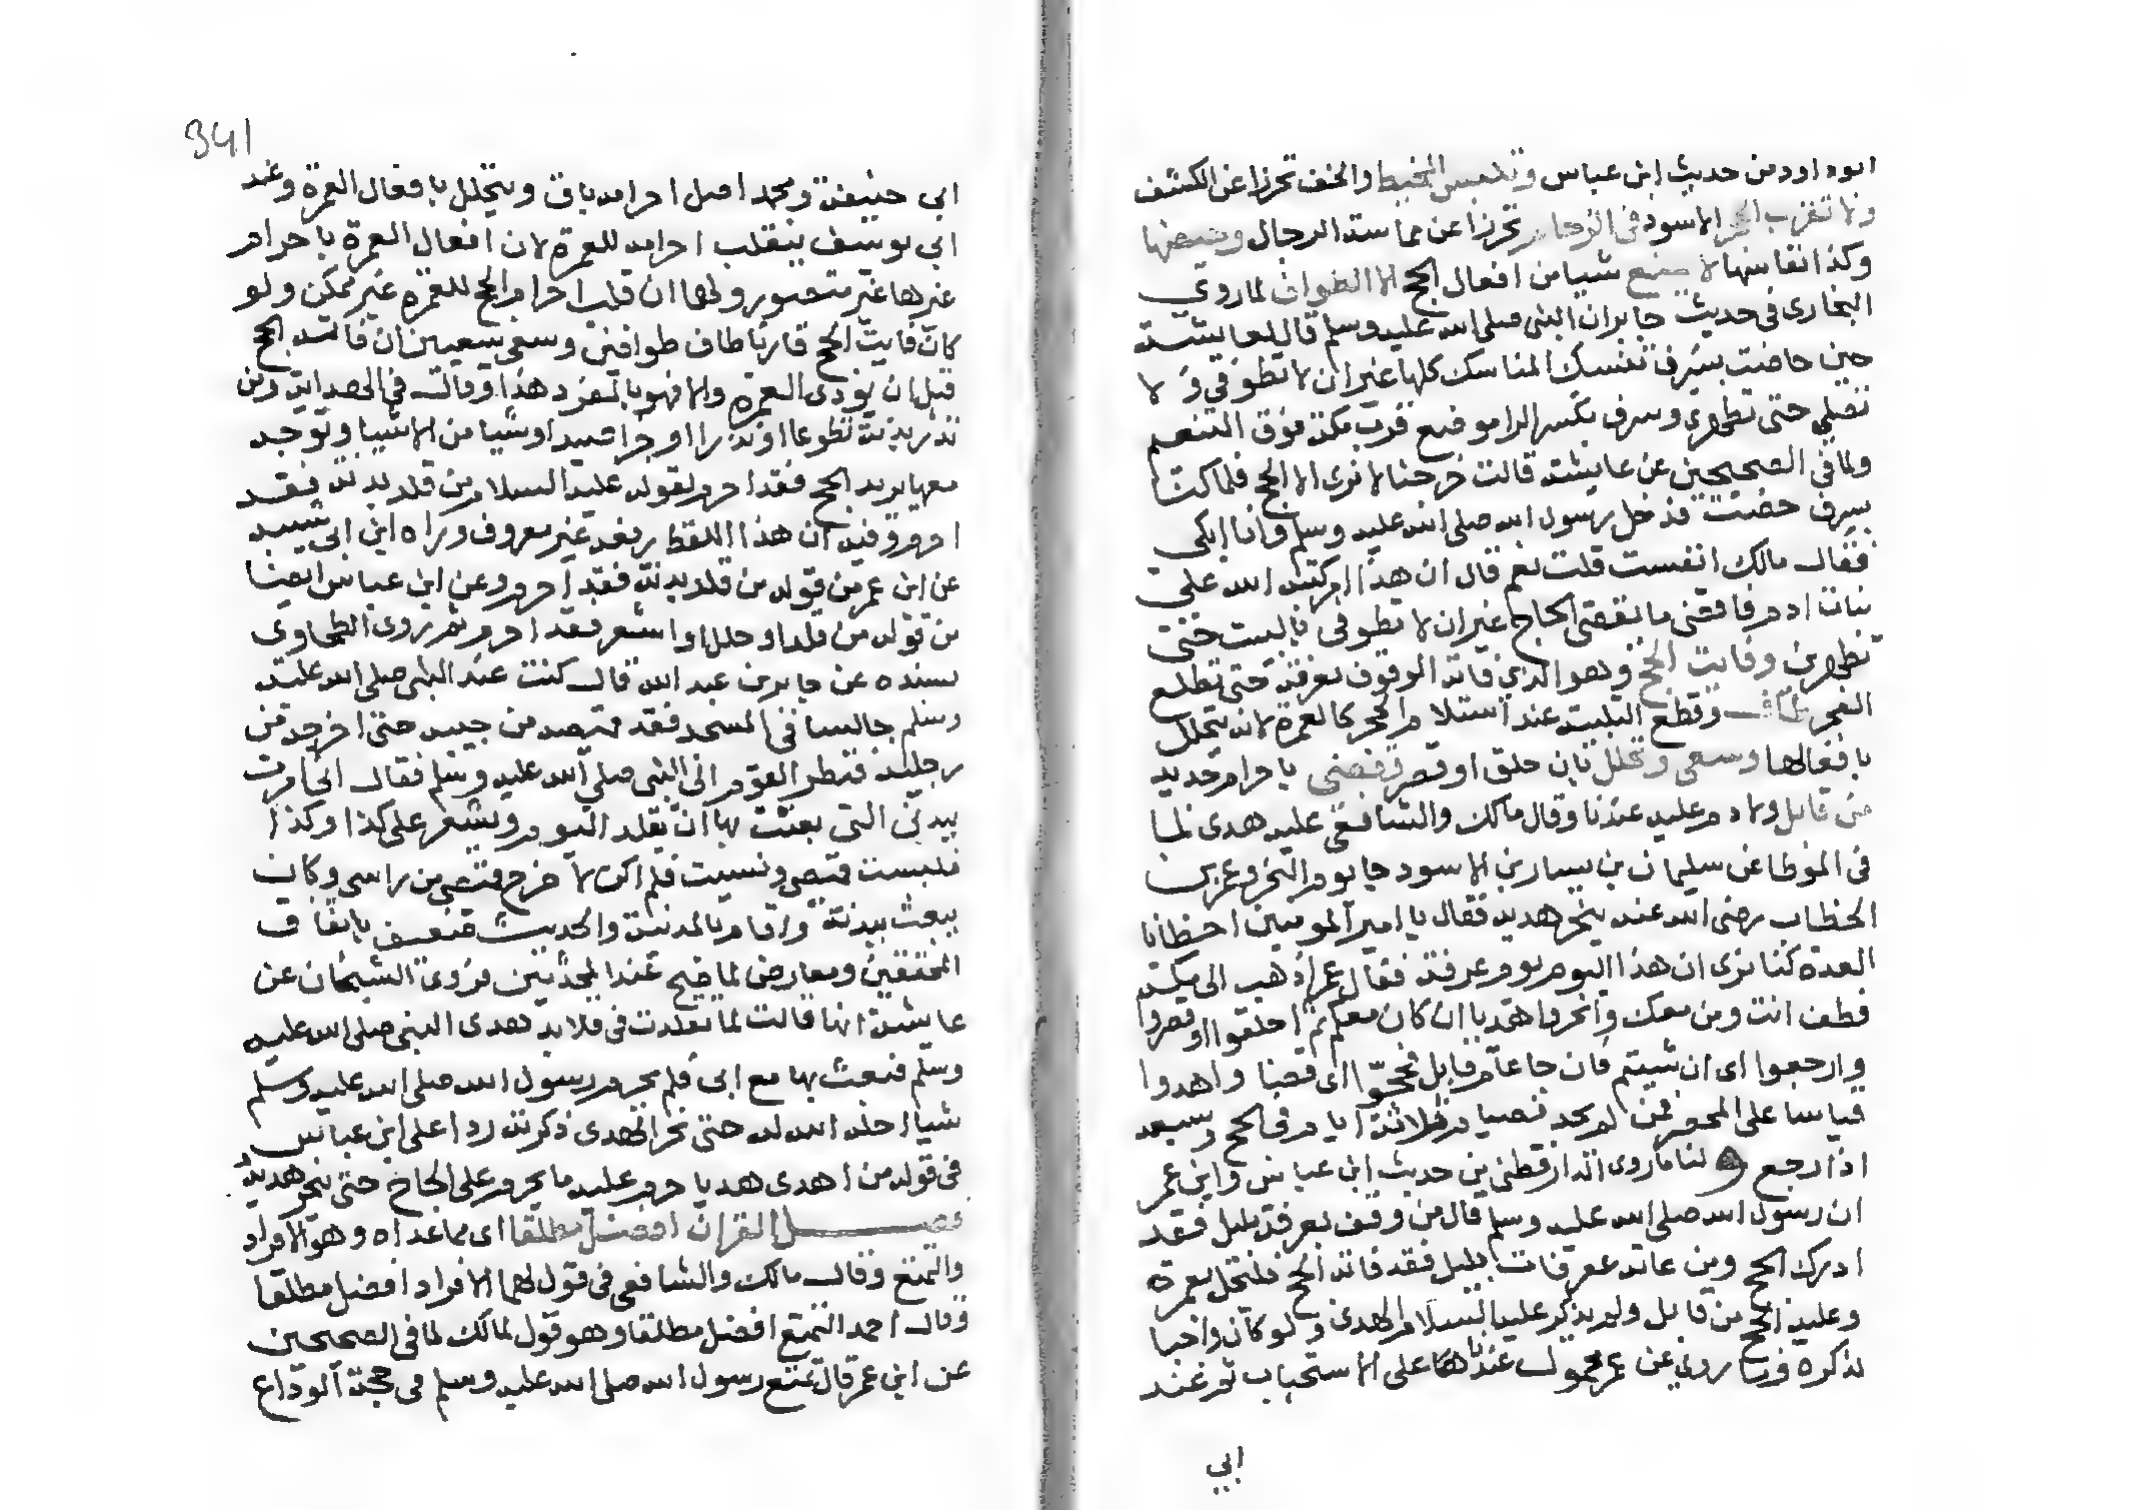 ابوداود من حديث ابن عباس وتلبس المخيط والخف تحرزا عن الكشف
ولا تقرب الحجر الاسود في الزحام تحرزا عن مماسة الرجال وحيضها
وكذا نفاسها لا يمنع شيا من افعال الحج الا الطواف لما روي
البخارى فى حديث جابر ان النبى صلى الله عليه وسلم قال لعايشة
حين حاضت بسرف تنسك المناسك كلها غير ان لا تطوفي و لا
تصلي حتى تطهرى وسرف بكسر الرا موضع قرب مكة فوق التنعيم
ولما في الصحيحين عن عايشة قالت خرجنا لا نرى الا الحج فلما كنت
بسرف حضت فدخل رسول الله صلى الله عليه وسلم وانا ابكي
فقال مالك انفست قلت نعم قال ان هذا امر كتبه الله على
بنات ادم فاقضى ما يقضى الحاج غير ان لا تطوفى بالبيت حتى
تطهرين وفايت الحج وهو الذي فاته الوقوف بعرفة حتى تطلع
الفجر طاف وقطع التلبية عند استلام الحجر كالعمرة لانه يتحلل
بافعالها وسعى وتحلل بان حلق او قصر فقضى باحرام جديد
من قابل ولا دم عليه عندنا وقال مالك والشافعي عليه هدى لما
فى الموطا عن سليمان بن يسار بن الاسود جا يوم النحر وعمر بن
الخطاب رضى الله عنه ينحر هديه فقال يا امير المومنين اخطانا
العدة كنا نرى ان هذا اليوم يوم عرفة فقال عمر اذهب الى مكة
فطف انت ومن معك وانحروا هديا ان كان معكم ثم احلقوا او قصروا
وارجعوا اى ان شيتم فان جا عام قابل فحجوا اى قضيا واهدوا
قياسا على المحصر فمن لم يجد فصيام ثلاثة ايام فى الحج وسبعة
اذا رجع ولنا ما روى الدارقطنى من حديث ابن عباس وابن عمر
ان رسول الله صلى الله عليه وسلم قال من وقف بعرفة بليل فقد
ادرك الحج ومن فاته عرفات بليل فقد فاته الحج فليتحلل بعمرة
وعليه الحج من قابل ولم يذكر عليه السلام الهدى ولو كان واجبا
لذكره وما روي عن عمر محمول عندنا على الاستحباب ثم عند
ابي
341
ابى حنيفة ومحمد اصل احرامه باق ويتحلل بافعال العمرة وعند
ابى يوسف ينقلب احرامه للعمرة لان افعال العمرة باحرام
غيرها غير متصور ولهما ان قلب احرام الحج للعمرة غير ممكن ولو
كان فايت الحج قارنا طاف طوافين وسعى سعيين ان فاته الحج
قبل ان يودى العمرة والا فهو كالمفرد هذا وقال في الهداية ومن
قلد بدنة تطوعا او نذرا او جزا صيد او شيا من الاشيا وتوجه
معها يريد الحج فقد احرم لقوله عليه السلام من قلد بدنة فقد
احرم وفيه ان هذا اللفظ رفعه غير معروف ورواه ابن ابى شيبة
عن ابن عمر من قوله من قلد بدنة فقد احرم وعن ابن عباس ايضا
من قوله من قلد او جلل او اشعر فقد احرم ثم روى الطحاوى
بسنده عن جابر بن عبد الله قال كنت عند النبى صلى الله عليه
وسلم جالسا فى المسجد فقد قميصه من جيبه حتى اخرجه من
رجليه فنظر القوم الى النبى صلى الله عليه وسلم فقال انى امرت
ببدنى التى بعثت بها ان تقلد اليوم وتشعر على كذا وكذا
فلبست قميصى ونسيت فلم اكن لا خرج قميصى من راسى وكان
يبعث ببدنة واقام بالمدينة والحديث ضعيف باتفاق
المحققين ومعارض لما صح عند المحدثين فروى الشيخان عن
عايشة انها قالت لما تقلدت فى قلايد هدى النبى صلى الله عليه
وسلم فبعث بها مع ابى فلم يحرم رسول الله صلى الله عليه وسلم
شيا احله الله له حتى نحر الهدى ذكرته ردا على ابن عباس
فى قوله من اهدى هديا حرم عليه ما يحرم على الحاج حتى ينحر هديه
فصل القران افضل مطلقا اى مما عداه وهو الافراد
والتمتع وقال مالك والشافعى فى قول لهما الافراد افضل مطلقا
وقال احمد التمتع افضل مطلقا وهو قول لمالك لما فى الصحيحين
عن ابن عمر قال تمتع رسول الله صلى الله عليه وسلم فى حجة الوداع